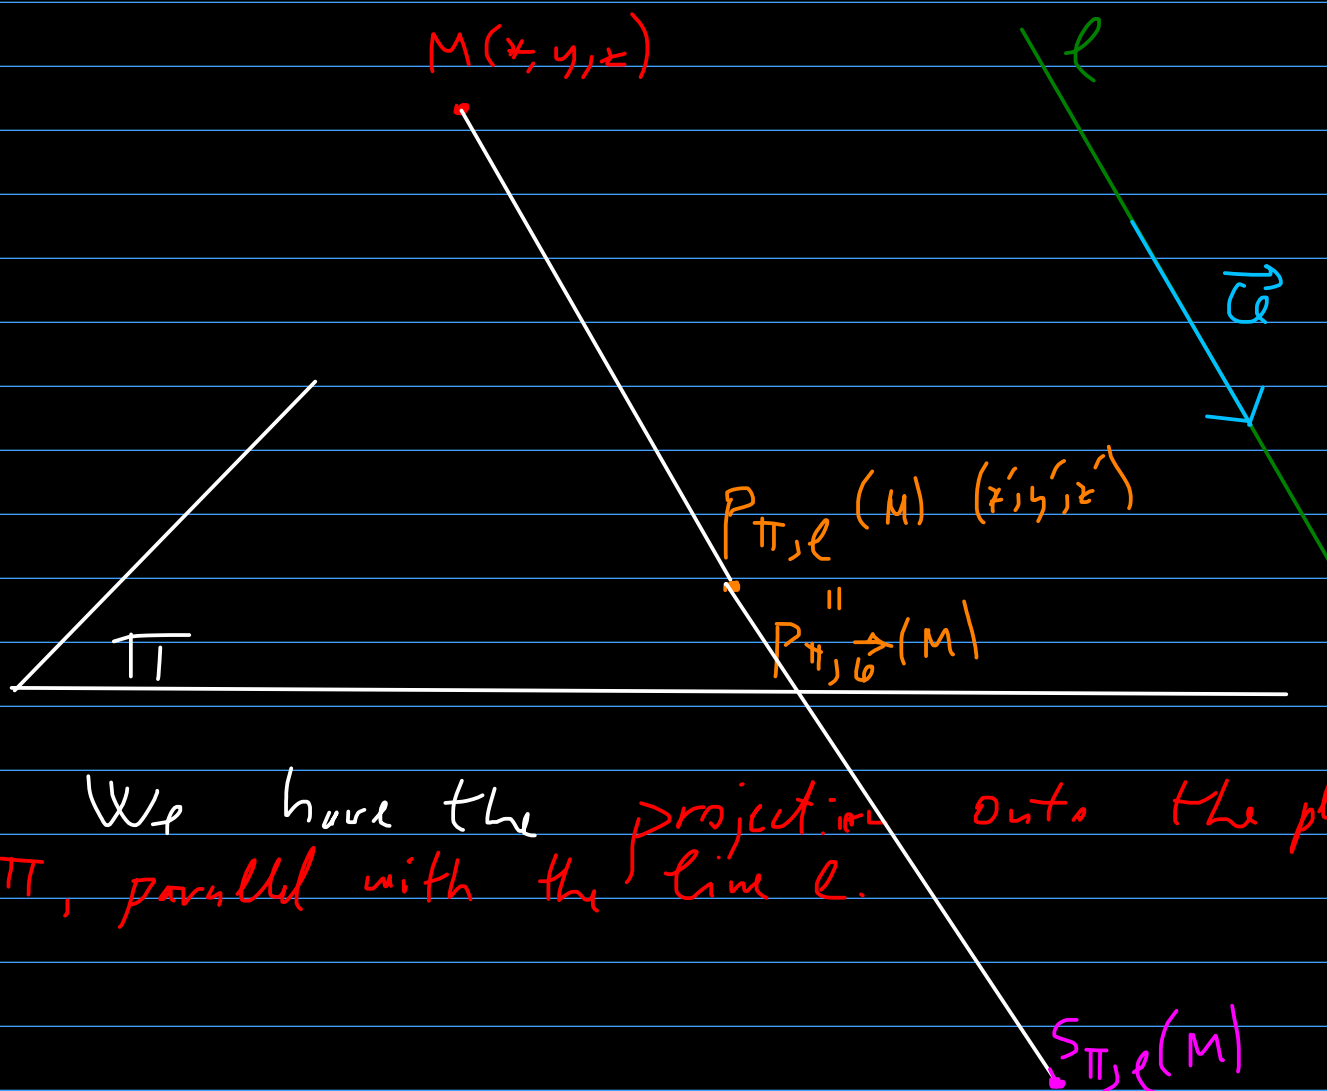 M(x, y, z)
ℓ
P_{π,ℓ}(M) (x', y', z')
=
P_{π,→}(M)
π
We have the projection onto the pl
π, parallel with the line ℓ.
S_{π,ℓ}(M)